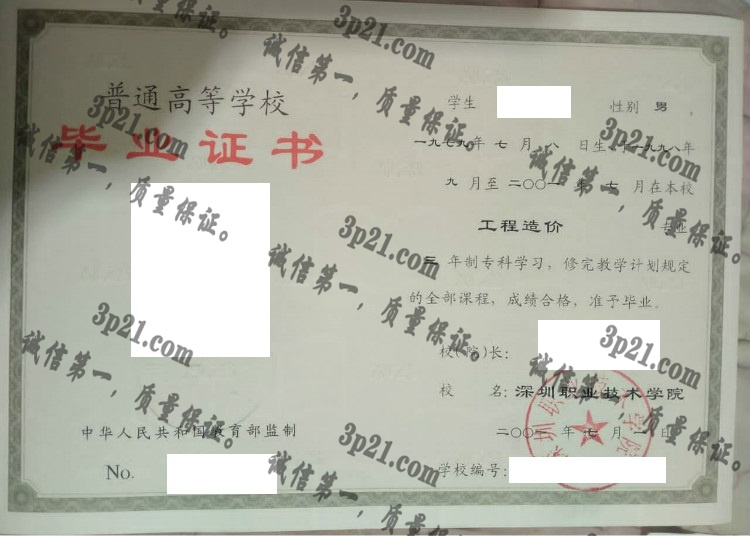 普通高等学校
毕业证书
中华人民共和国教育部监制
No.
学生 性别 男 ,
一九七九年七月八日生,于一九九八年
九月至二〇〇一年七月在本校
工程造价 专业
三年制专科学习,修完教学计划规定
的全部课程,成绩合格,准予毕业。
校(院)长:
校 名:深圳职业技术学院
二〇〇一年七月一日
学校编号:
深圳职业技术学院
3p21.com
诚信第一,质量保证。
3p21.com
诚信第一,质量保证。
3p21.com
诚信第一,质量保证。
3p21.com
诚信第一,质量保证。
3p21.com
诚信第一,质量保证。
3p21.com
诚信第一,质量保证。
3p21.com
诚信第一,质量保证。
质量保证。